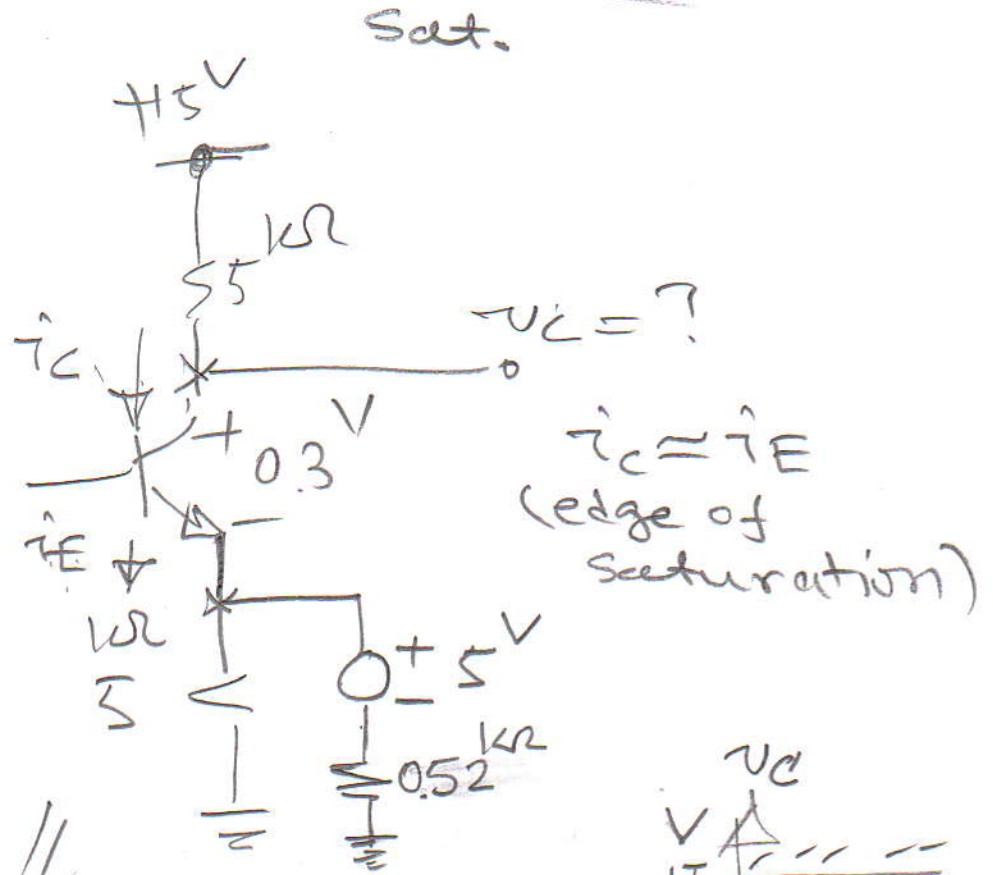 Sat.
+15 V
kΩ
5
v_C = ?
i_C
+
0.3 V
−
i_C ≃ i_E
(edge of
saturation)
i_E
kΩ
5
+ 5 V
−
0.52 kΩ
v_C
V